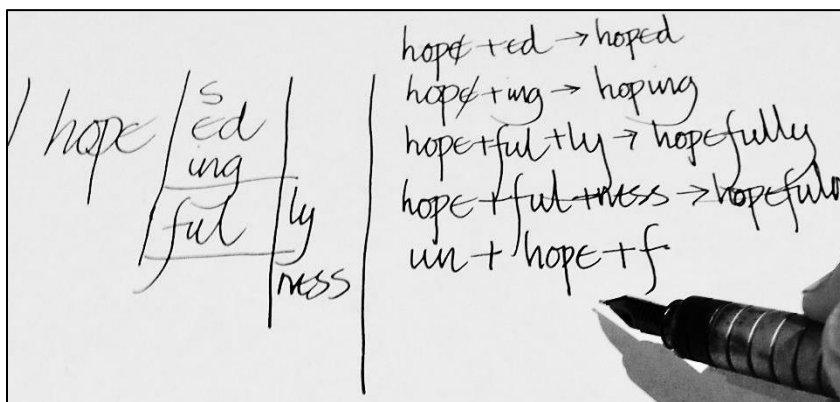 hope
s
ed
ing
ful
ly
ness
hope + ed → hoped
hope + ing → hoping
hope+ful+ly → hopefully
hope + ful+ness → hopefuln
un + hope + f